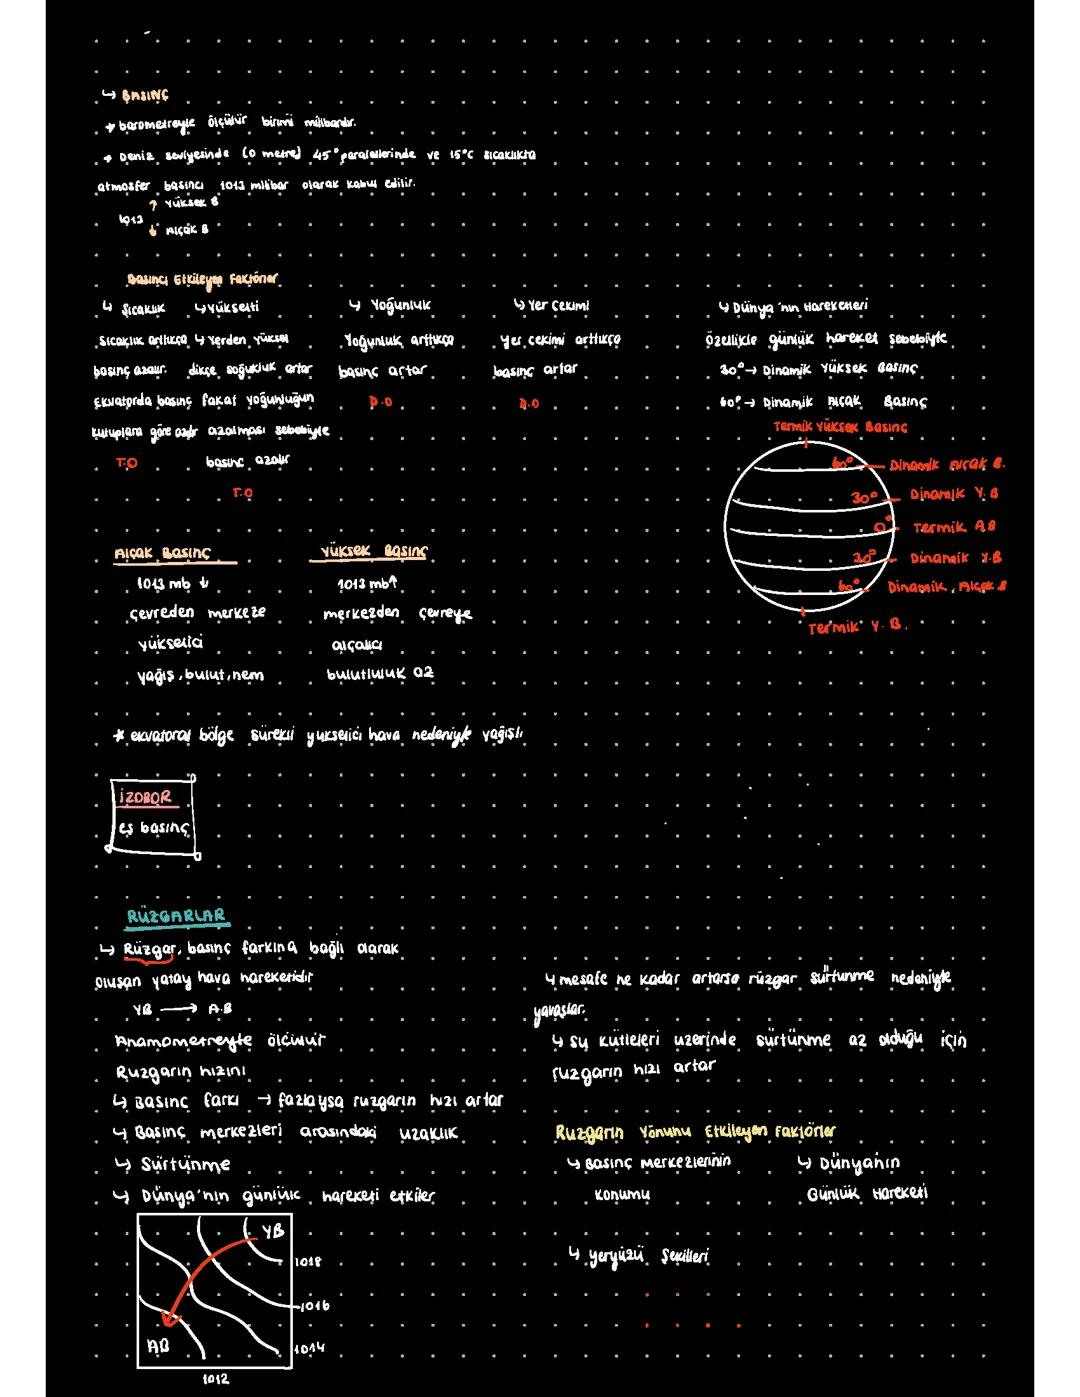 ↳ BASINÇ
→ barometreyle ölçülür birimi milibardır.
→ Deniz seviyesinde (0 metre) 45° paralellerinde ve 15°C sıcaklıkta
atmosfer basıncı 1013 milibar olarak kabul edilir.
↑ Yüksek B
1013
↓ Alçak B
Basıncı Etkileyen Faktörler
↳ Sıcaklık
Sıcaklık arttıkça
basınç azalır.
Ekvatorda basınç
kutuplara göre azdır
T.O
↳ Yükselti
↳ Yerden yüksel
dikçe soğukluk artar
fakat yoğunluğun
azalması sebebiyle
basınç azalır
T.O
↳ Yoğunluk
Yoğunluk arttıkça
basınç artar
D.O
↳ Yer Çekimi
Yer çekimi arttıkça
basınç artar
D.O
↳ Dünya'nın Hareketleri
Özellikle günlük hareket sebebiyle
30° → Dinamik Yüksek Basınç
60° → Dinamik Alçak Basınç
Termik Yüksek Basınç
60° Dinamik Alçak B.
30° Dinamik Y.B
0° Termik A.B
30° Dinamik Y.B
60° Dinamik Alçak B
Termik Y.B.
Alçak Basınç
1013 mb ↓
çevreden merkeze
yükselici
yağış, bulut, nem
Yüksek Basınç
1013 mb↑
merkezden çevreye
alçalıcı
bulutluluk az
* ekvatoral bölge sürekli yükselici hava nedeniyle yağışlı
İZOBOR
eş basınç
RÜZGARLAR
↳ Rüzgar, basınç farkına bağlı olarak
oluşan yatay hava hareketidir
YB → A.B
Anamometreyle ölçülür
Ruzgarın hızını
↳ Basınç farkı → fazlaysa ruzgarın hızı artar
↳ Basınç merkezleri arasındaki uzaklık
↳ Sürtünme
↳ Dünya'nın günlük hareketi etkiler
YB
1018
1016
AB
1014
1012
↳ mesafe ne kadar artarsa rüzgar sürtünme nedeniyle
yavaşlar.
↳ su kütleleri üzerinde sürtünme az olduğu için
ruzgarın hızı artar
Ruzgarın Yönünü Etkileyen Faktörler
↳ Basınç Merkezlerinin
Konumu
↳ Dünyanın
Günlük Hareketi
↳ yeryüzü Şekilleri